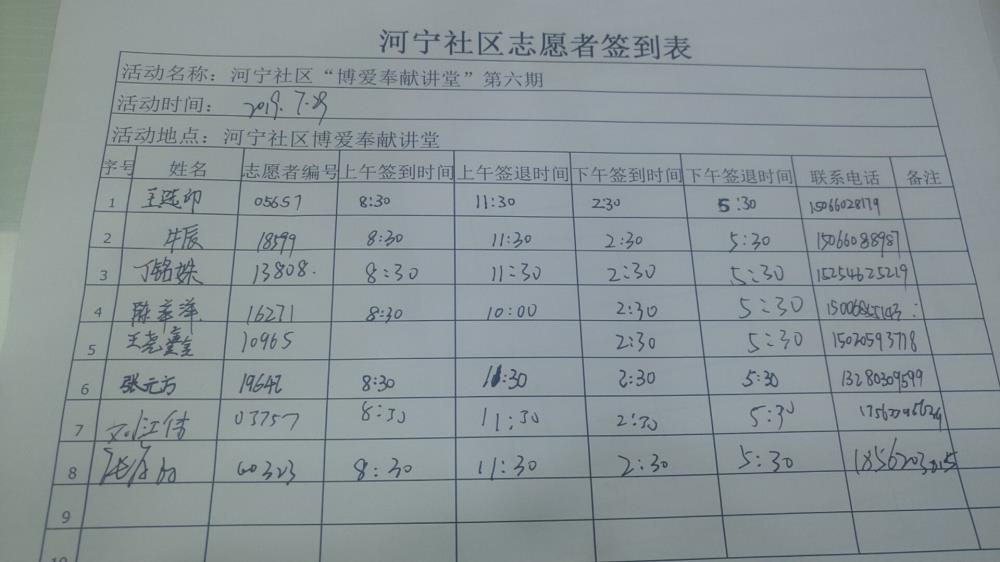 河宁社区志愿者签到表
活动名称：河宁社区“博爱奉献讲堂”第六期
活动时间： 2019.7.29
活动地点：河宁社区博爱奉献讲堂
序号 姓名 志愿者编号 上午签到时间 上午签退时间 下午签到时间 下午签退时间 联系电话 备注
1 05657 8:30 11:30 2:30 5:30 15066028179
2 牛辰 18599 8:30 11:30 2:30 5:30 15066088987
3 丁铭姝 13808. 8:30 11:30 2:30 5:30 15254625219
4 陈萍萍 16271 8:30 10:00 2:30 5:30
5 10965 2:30 5:30 15020593718
6 张元方 19642 8:30 11:30 2:30 5:30 13280309599
7 刘江伟 03757 8:30 11:30 2:30 5:30
8 00323 8:30 11:30 2:30 5:30
9
10